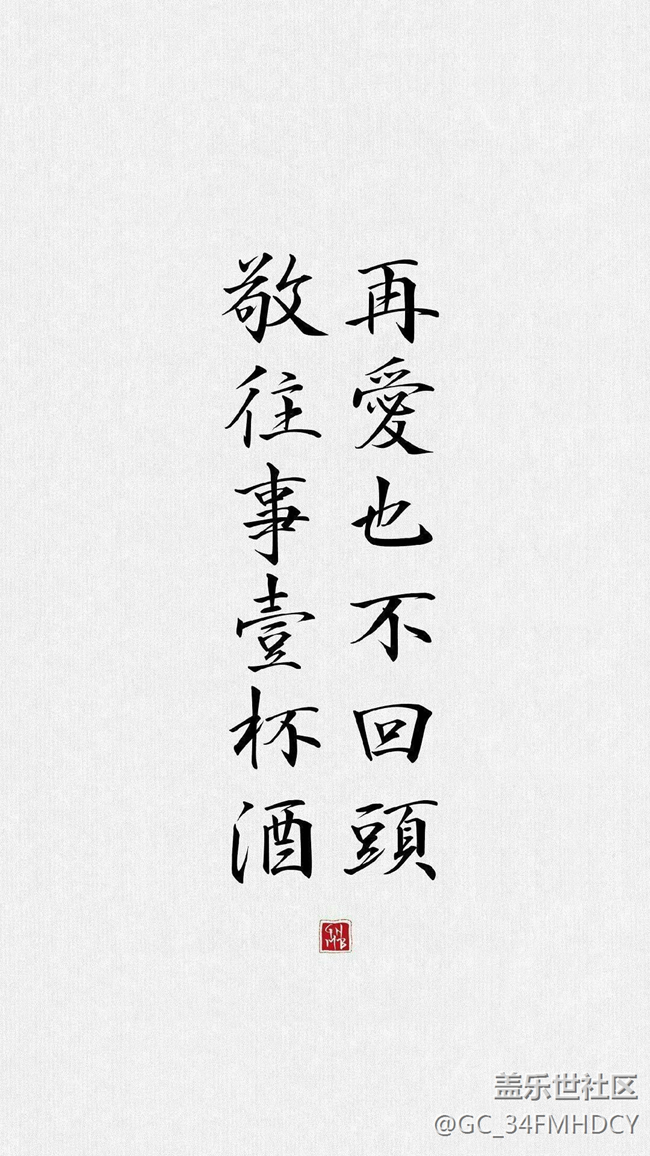 再愛也不回頭
敬往事壹杯酒
盖乐世社区
@GC_34FMHDCY